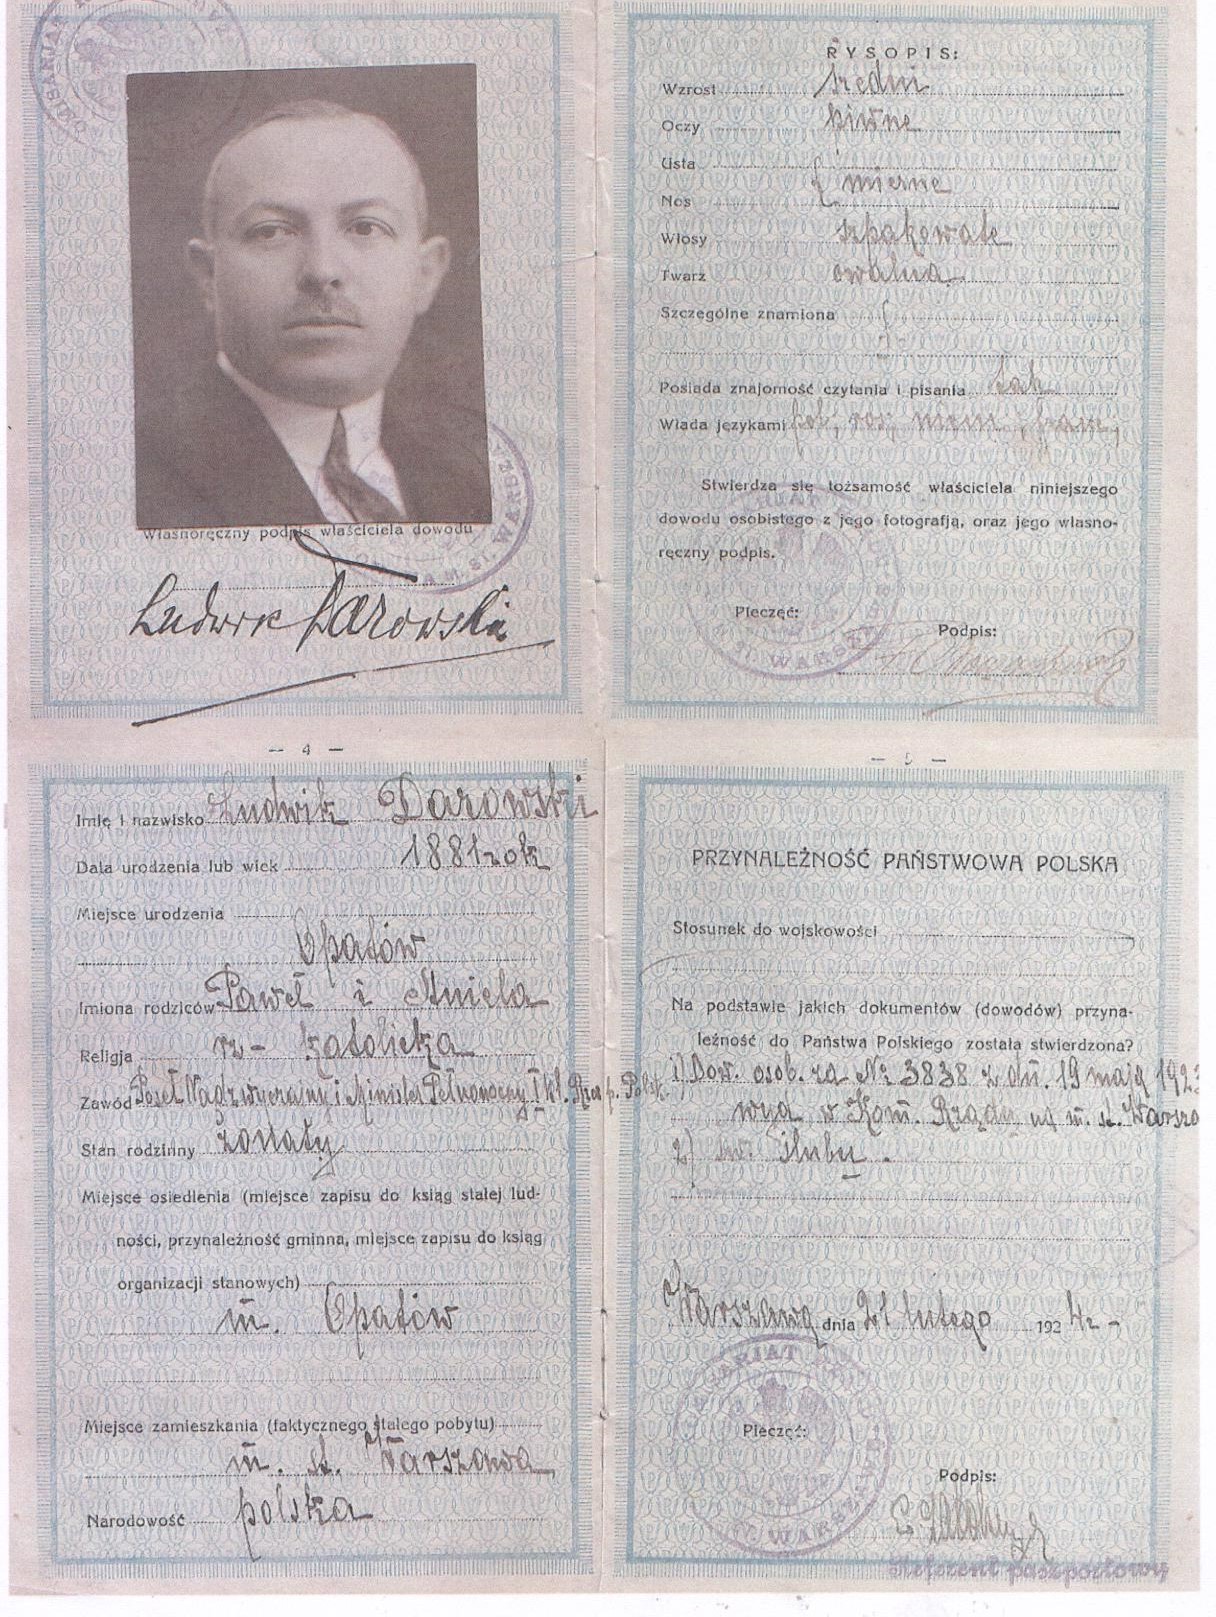 Własnoręczny podpis właściciela dowodu
Ludwik Darowski
RYSOPIS:
Wzrost średni
Oczy piwne
Usta
} mierne
Nos
Włosy szpakowate
Twarz owalna
Szczególne znamiona
Posiada znajomość czytania i pisania tak
Włada językami pol, ros, niem, franc,
Stwierdza się tożsamość właściciela niniejszego
dowodu osobistego z jego fotografją, oraz jego własno-
ręczny podpis.
Pieczęć:
Podpis:
WARSZ
— 4 —
Imię i nazwisko Ludwik Darowski
Data urodzenia lub wiek 1881 rok
Miejsce urodzenia
Opatów
Imiona rodziców Paweł i Aniela
Religja rz-katolicka
Zawód Poseł Nadzwyczajny i Minister Pełnomocny I kl. Rzec p. Polsk.
Stan rodzinny żonaty
Miejsce osiedlenia (miejsce zapisu do ksiąg stałej lud-
ności, przynależność gminna, miejsce zapisu do ksiąg
organizacji stanowych)
m. Opatów
Miejsce zamieszkania (faktycznego stałego pobytu)
m. st. Warszawa
Narodowość polska
— 5 —
PRZYNALEŻNOŚĆ PAŃSTWOWA POLSKA
Stosunek do wojskowości
Na podstawie jakich dokumentów (dowodów) przyna-
leżność do Państwa Polskiego została stwierdzona?
1) Dow. osob. za № 3838 z dn. 19 maja 1923
wyd w Kom. Rządu na m. st. Warsza
2) św. ślubu.
Warszawa dnia 21 lutego 1924 r-
Pieczęć:
Podpis:
Referent paszportowy